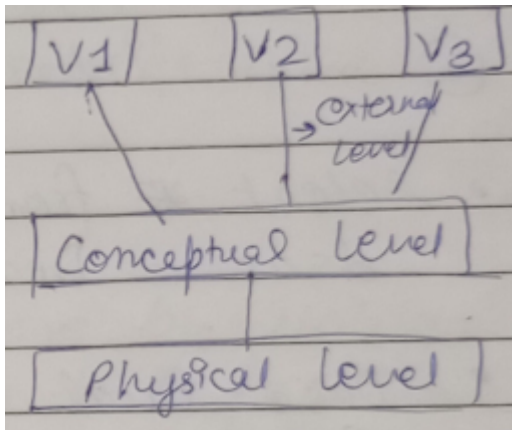 V1 V2 V3
→ external
level
Conceptual level
Physical level